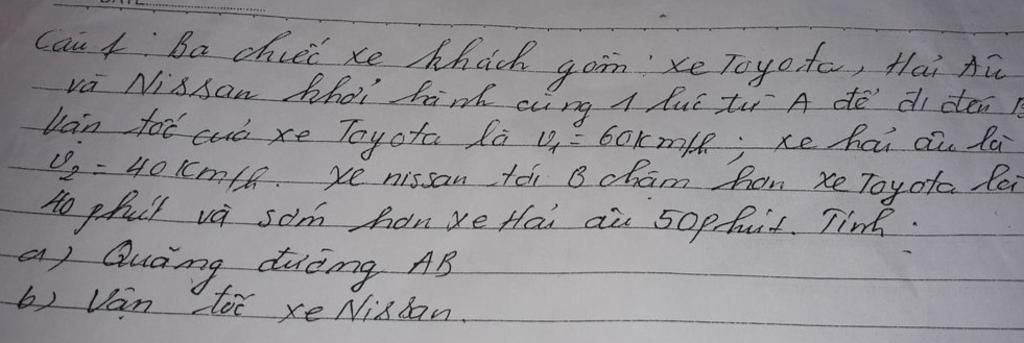 Câu 1: Ba chiếc xe khách gồm: xe Toyota, Hải Âu
và Nissan khởi hành cùng 1 lúc từ A để đi đến B
Vận tốc của xe Toyota là v₁ = 60km/h; xe hải âu là
v₂ = 40km/h. xe nissan tới B chậm hơn xe Toyota là
40 phút và sớm hơn xe Hải âu 50phút. Tính:
a) Quãng đường AB
b) Vận tốc xe Nissan.